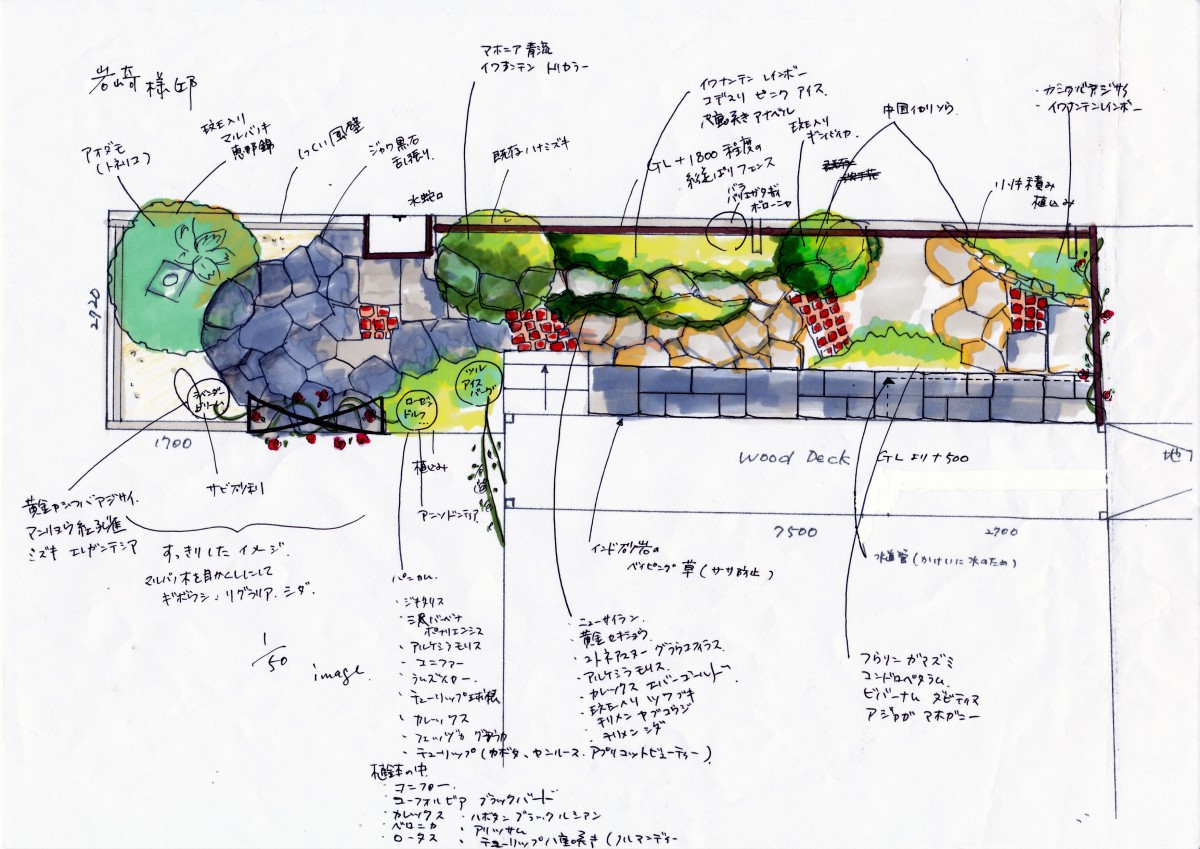 岩崎様邸
マホニア 青海
イワナンテン トリカラー
イワナンテン レインボー
コデマリ ピンク アイス
アナベル
中国イカリソウ
・カシワバアジサイ
・イワナンテンレインボー
斑入り
マルバノキ
恵那錦
アオダモ
(トネリコ)
しっくい風壁
ジャワ黒石
乱張り
既存ハナミズキ
GL+1800 程度の
縦ばりフェンス
斑入り
バラ
植込み
水蛇口
2920
ラベンダー
ドリーム
ローゼン
ドルフ
ツル
アイス
バーグ
1700
サビ砂利
植込み
アニソドンティア
Wood Deck
GLより+500
7500
2700
黄金カシワバアジサイ.
アンリョウ 紅孔雀
ミズキ エレガンテシア
すっきりした イメージ.
マルバノ木を目かくしにして
ギボウシ. リグラリア. シダ.
1/50
image.
インド砂岩の
ペイビング
草(ササ防止)
水道管(かけいに水のため)
パニカム.
・ジキタリス
・三尺バーベナ
ボナリエンシス
・アルケミラモリス
・ユニファー
・ラムズイヤー.
・チューリップ 球根
・カレックス
・チューリップ(カボタ、サンルース. アプリコットビューティー)
・ニューサイラン.
・黄金セキショウ.
・コトネアスター グラウコフィラス
・アルケミラモリス.
・カレックス エバーゴールド
・斑入り ツワブキ
・チリメン ヤブコウジ
・チリメン シダ
ガマズミ
コンドロペタラム.
ビバーナム ダビディス
アジュガ マホガニー
植鉢の中
・コニファー.
・ユーフォルビア ブラックバード
・カレックス
・ハボタン ブラックルシアン
・ベロニカ
・アリッサム
・ロータス
・チューリップ八重咲き(ノルマンディー